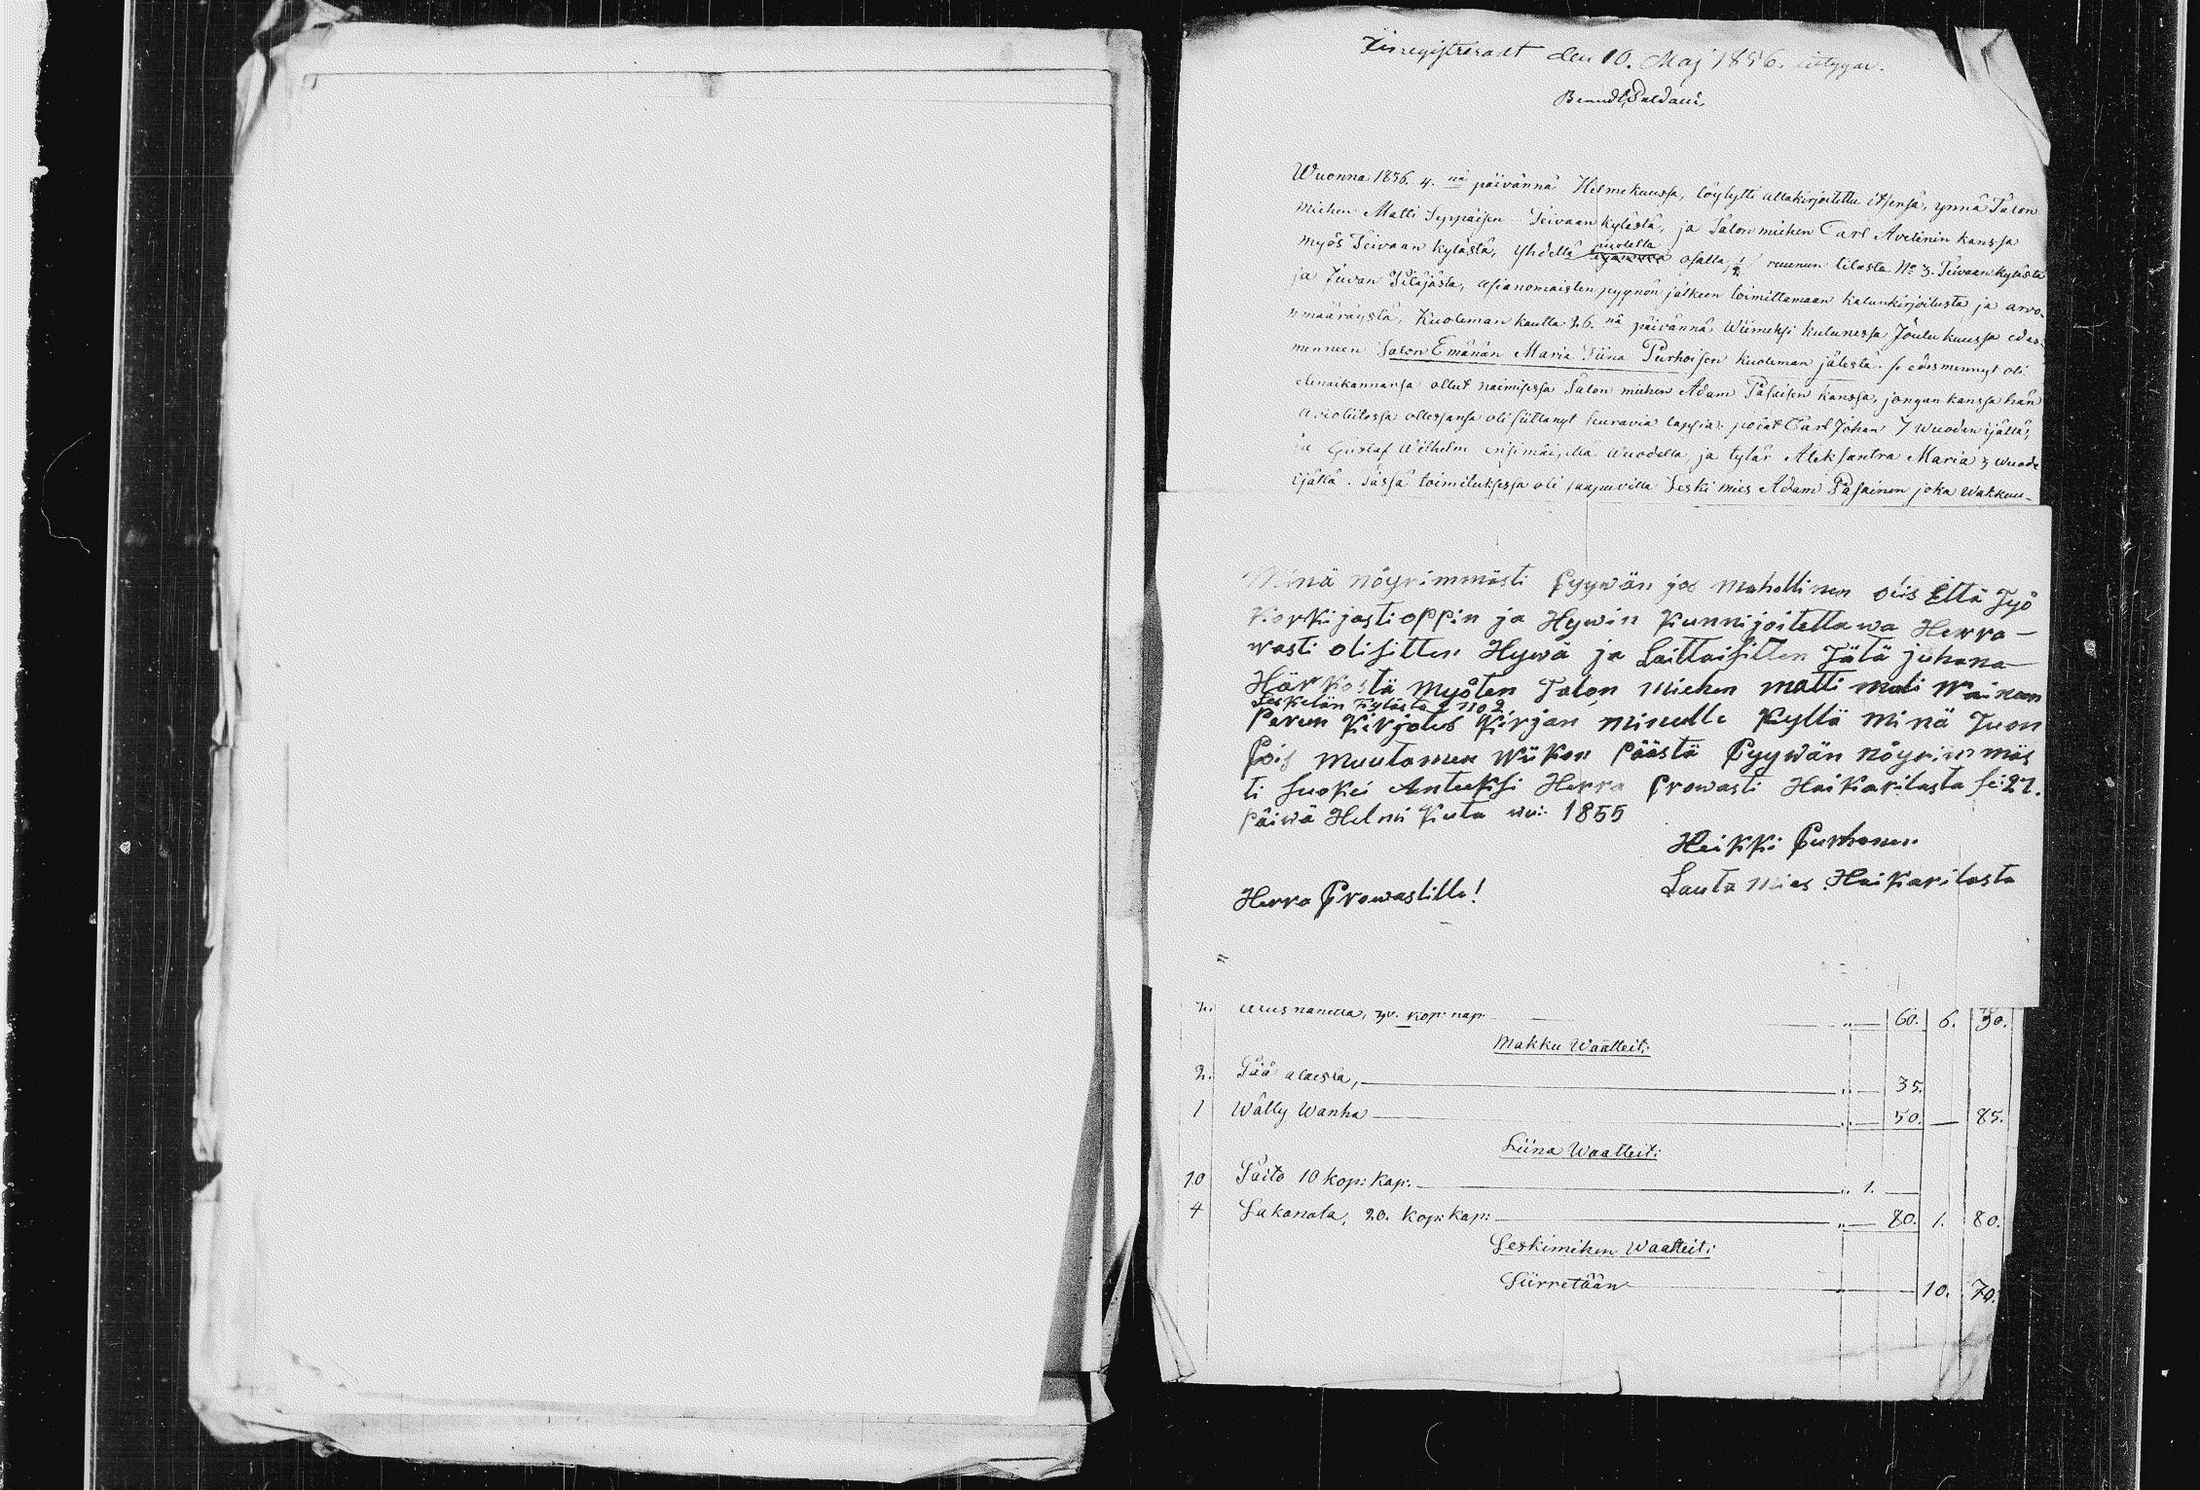 den 10. Maj 1856.
Wuonna 1856. 4. nä päivännä Helmekuussa, löylytti allakirjoitettu itsensä, ynnä Talon
miehen Matti Seppäisen Teivaan kylästä, ja Talon miehen Carl Avelinin kanssa
myös Teivaan kylästä, Yhdellä puolella osalla, 1/2 ruunun tilasta No 3. Teivaan kylästä
ja Juvan Pitäjästä, asianomaisten pyynön jälkeen toimittamaan kalunkirjoitusta ja arvo-
määräystä, Kuoleman kautta 26. nä päivännä, Wiimeksi kulunessa Joulu kuussa edes-
menneen Talon Emänän Maria Stiina Purhoisen kuoleman jälestä. se edesmennyt oli
elinaikannansa ollut naimisessa Talon miehen Adam Päsäisen kanssa, jongan kanssa hän
avioliitossa ollessansa oli siittänyt seuravia lapsia: pojat Carl Johan 7 wuoden ijällä,
ja Gustaf Wilhelm ensimäisellä wuodella, ja tytär Aleksantra Maria 3 wuode
ijällä. Tässä toimituksessa oli saapuvilla Leski mies Adam Päsäinen joka wakkuu-
Minä nöyrimmästi Pyywän jos mahollinen olis Että Työ
Korkijastioppin ja Hywin Kunnijoitettawa Herra
wasti olisitten Hywä ja Laittaisitten Tätä juhana
Härköstä myöten Talon miehen matti
Leskelän Kylästä No 2
Perun Kirjotus Kirjan minulle Kyllä minä Tuon
Pois muutamen Wiikon Päästä Pyywän nöyrimmäs
ti suokei Anteeksi Herra Prowasti Haikarilasta se 27.
Päiwä Helmi Kuta wu: 1855
Heikki Purhonen
Lauta mies Haikarilasta
Herra Prowastille!
kop: kap. 60. 6. 30.
Makku Waatteit:
2. Pää alaista, 35.
1 Wälly Wanha 50. 85.
Liina Waatteit:
10 Paito 10 kop: kap. 1.
4 Lakanata, 20. kop: kap: 80. 1. 80.
Leskimihen Waatteit:
Siirretään 10. 70.